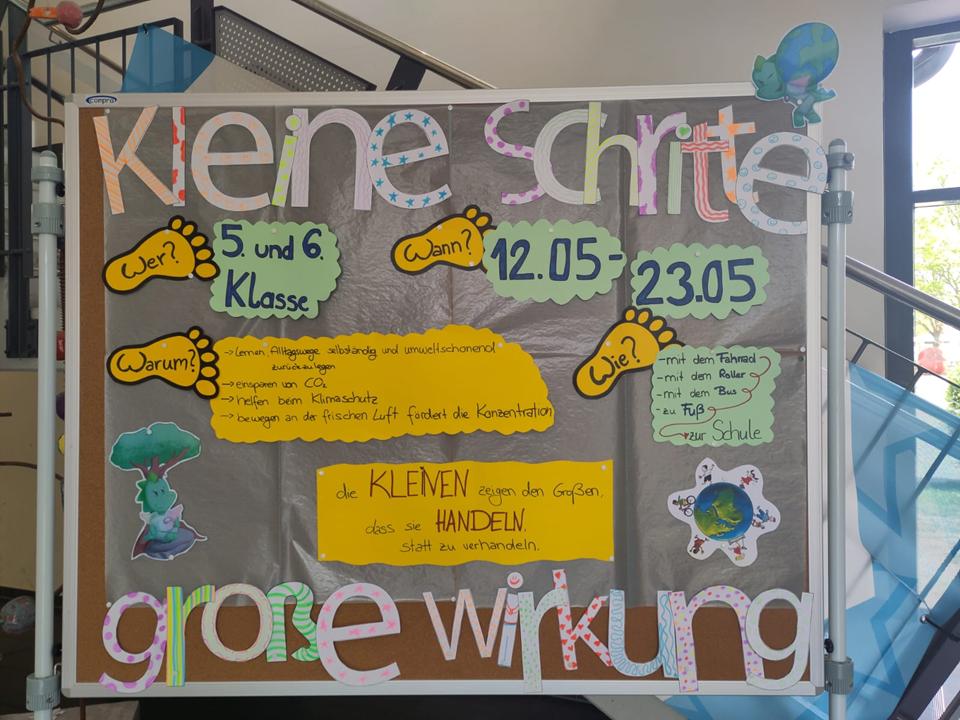 conpra
Kleine Schritte
Wer?
5. und 6.
Klasse
Wann?
12.05-
23.05
Warum?
-> Lernen, Alltagswege selbständig und umweltschonend
zurückzulegen
-> einsparen von CO₂
-> helfen beim Klimaschutz
-> bewegen an der frischen Luft fördert die Konzentration
Wie?
-mit dem Fahrrad
-mit dem Roller
-mit dem Bus
-zu Fuß
zur Schule
die KLEINEN zeigen den Großen,
dass sie HANDELN,
statt zu verhandeln.
große Wirkung